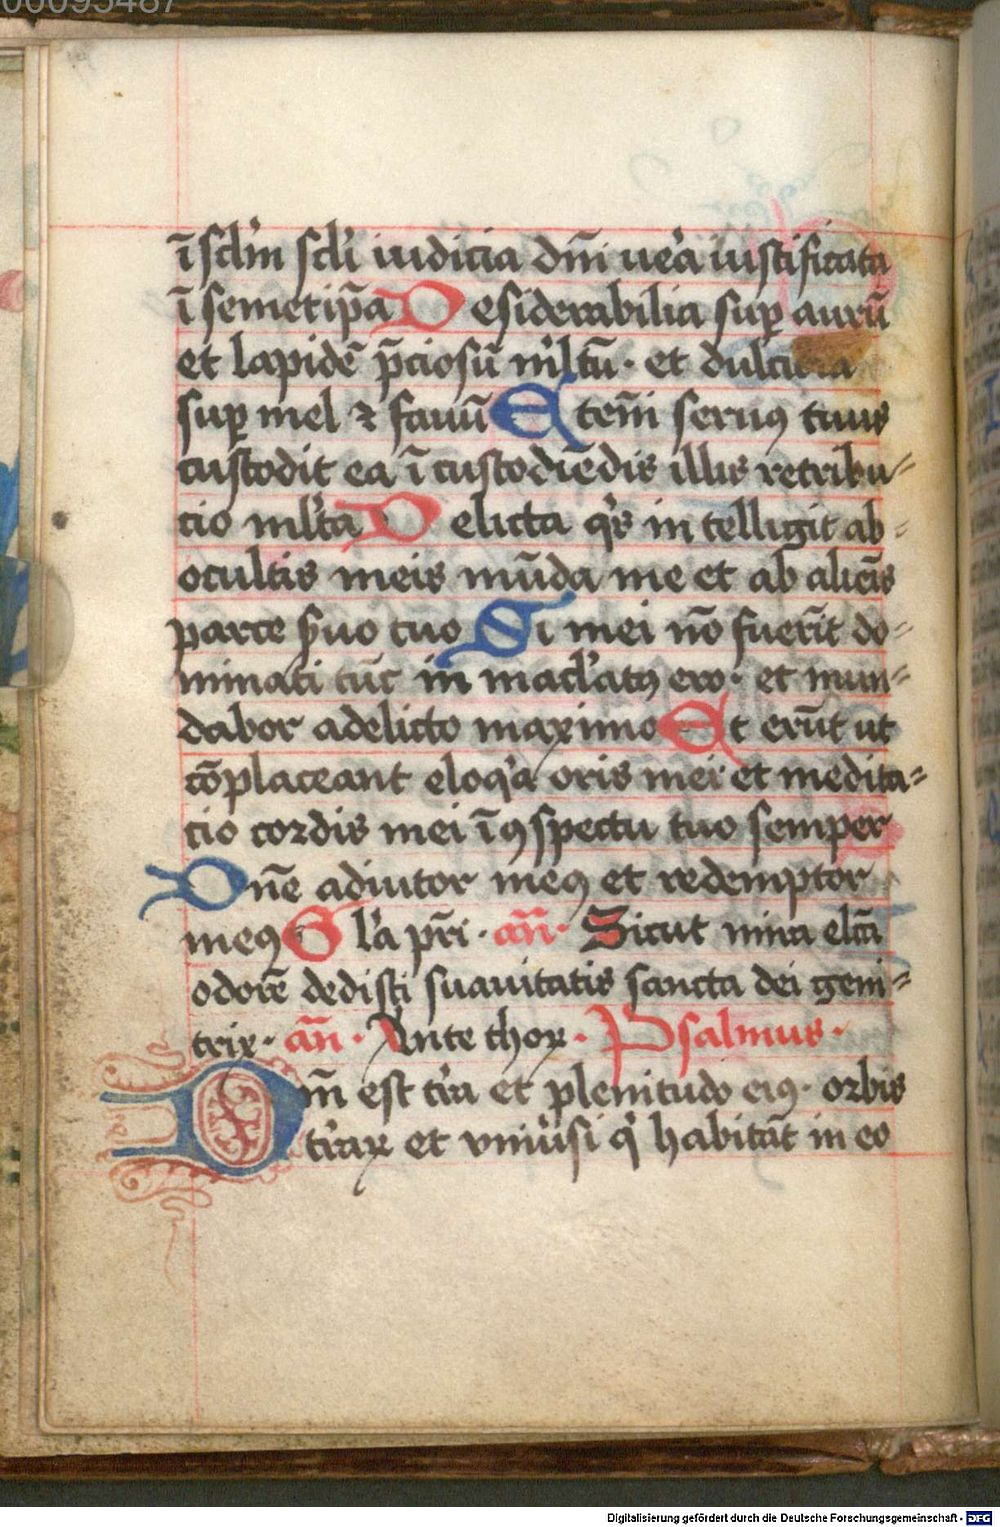 00095487
ī sclʼm sclʼi iudicia dn̄i ueʼa iustificata
ī semetip̄a Desiderabilia suꝑ aurū
et lapidē p̄ciosū mʼltū · et dulciora
suꝑ mel ⁊ fauū Etem̄ seruꝯ tuus
custodit ea ī custodiēdis illis retribu-
cio mlʼta Delicta qʼs in telligit ab-
ocultis meis mūda me et ab aliēis
parce sʼuo tuo Si mei nō fuerīt do-
minati tūc in maclʼatꝯ ero · et mun-
dabor adelicto maximo Et erūt ut
cōplaceant eloqʼa oris mei et medita-
cio cordis mei ī ꝯspectu tuo semper
Dn̄e adiutor meꝯ et redemptor
meꝯ Glʼa pr̄i · an̄ · Sicut mirra elc̄a
odorē dedisti suauitatis sancta dei geni-
trix · an̄ · Ante thoꝝ · Psalmus ·
Dn̄i est tʼra et plenitudo eiꝯ · orbis
tʼraꝝ et vniuʼsi qʼ habitāt in eo
Digitalisierung gefördert durch die Deutsche Forschungsgemeinschaft - DFG